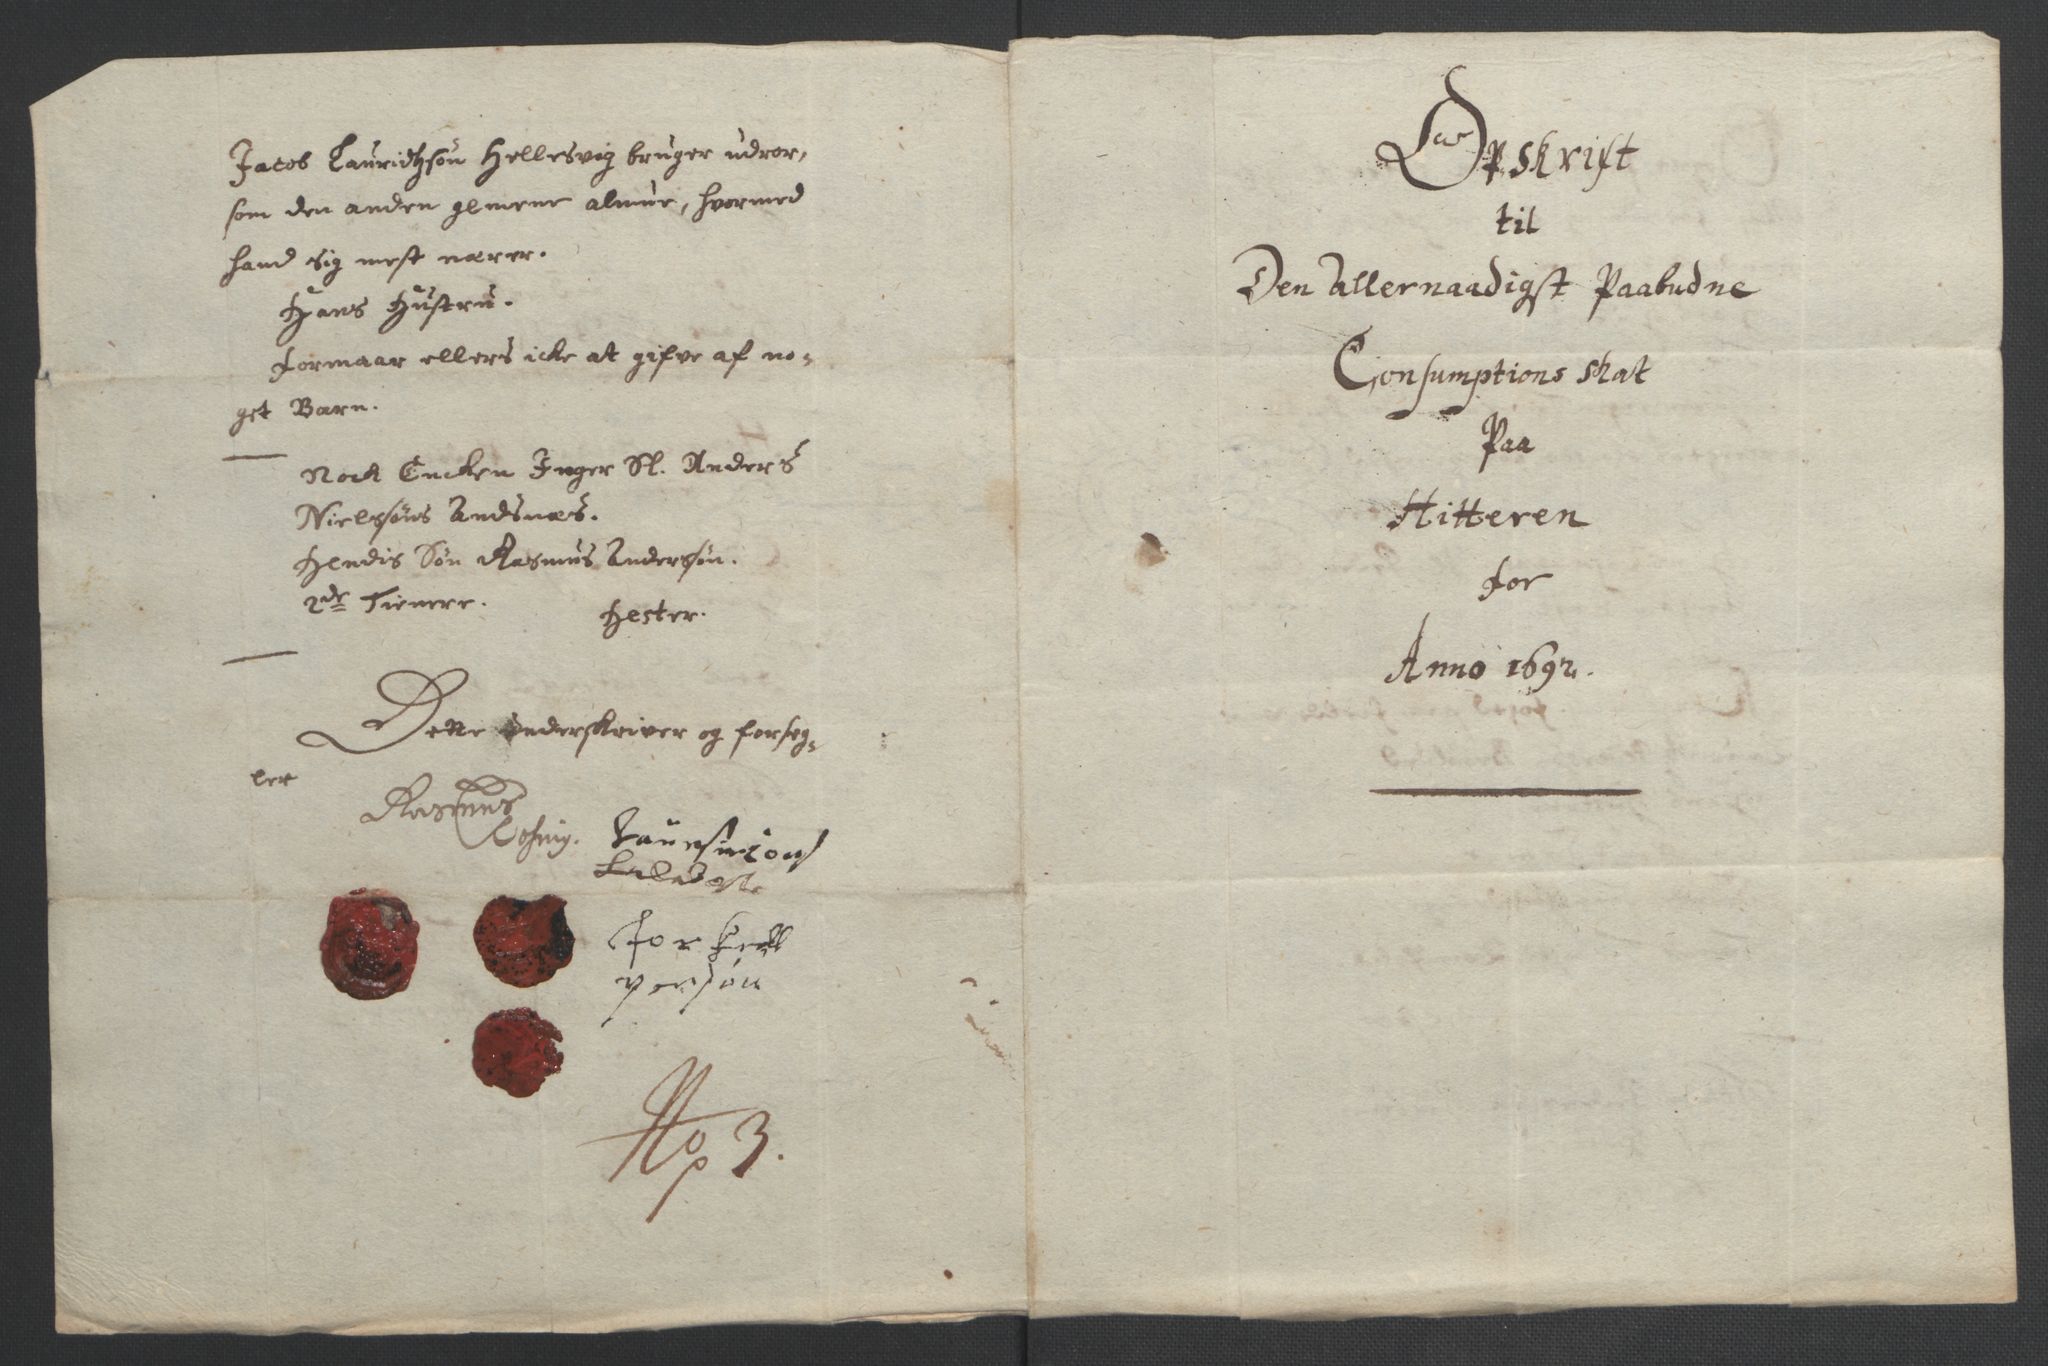 Jacob Lauridtzsøn Hellesvig bruger udror,
som den anden gemene almue, hvormed
hand sig mest nærer.
Hans Hustru.
Formaar ellers icke at gifve af no-
get Barn.
Nock Encken Inger Sl. Anders
Nielsøns Andsnæs.
Hendis Søn Rasmus Andersøn.
2de Tienere.
Hester.
Dette underskriver og forseg-
ler
Rasmus
for
persøn
No 3.
Opskrift
til
Den Allernaadigst Paabudne
Consumptions Skat
Paa
Hitteren
for
Anno 1692.